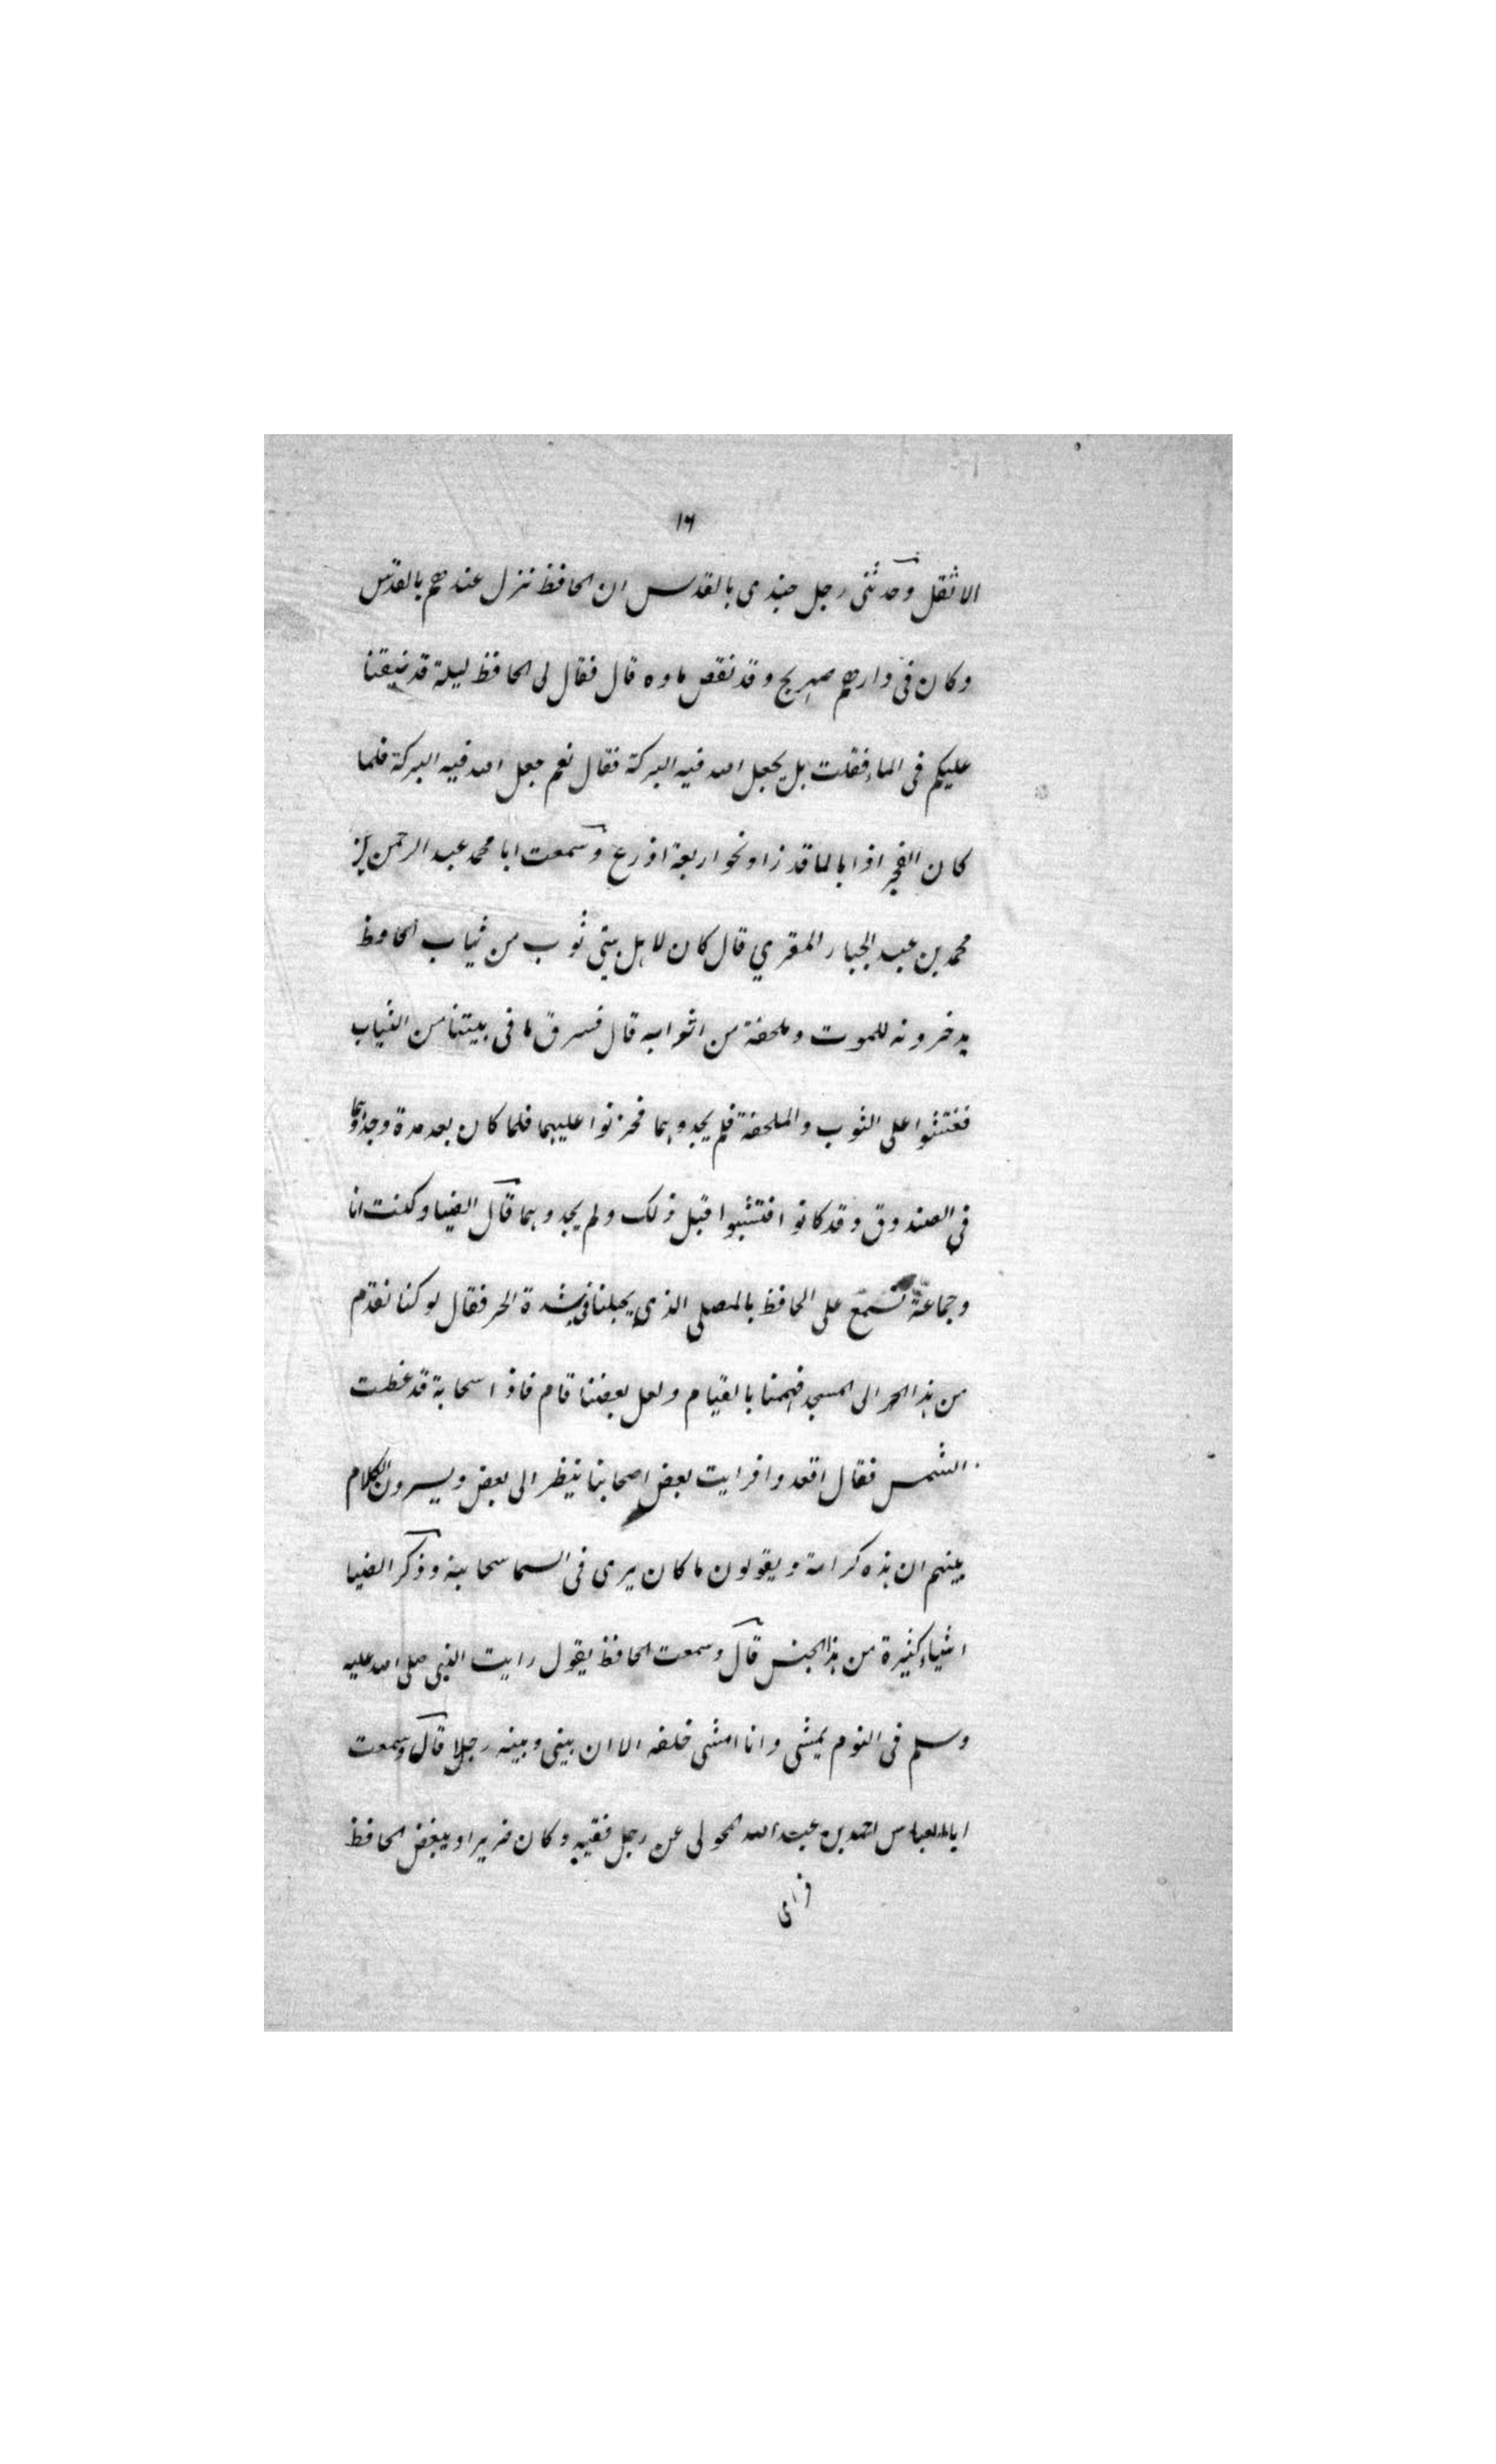 ١٦
الا ثقل وحدثنى رجل جندى بالقدس ان الحافظ نزل عندهم بالقدس
وكان فى دارهم صهريج وقد نقص ماوه قال فقال لى الحافظ ليلة قد ضيقنا
عليكم فى الماء فقلت بل يجعل الله فيه البركة فقال نعم جعل الله فيه البركة فلما
كان الفجر اذا بالما قد زاد نحو اربعة اذرع وسمعت ابا محمد عبد الرحمن بن
محمد بن عبد الجبار المقري قال كان لاهل بيتى ثوب من ثياب الحافظ
يدخرونه للموت وملحفة من اثوابه قال فسرق ما فى بيتنا من الثياب
ففتشوا على الثوب والملحفة فلم يجدوهما فحزنوا عليهما فلما كان بعد مدة وجدوهما
في الصندوق وقد كانوا فتشوا قبل ذلك ولم يجدوهما قال الضيا وكنت انا
وجماعة نسمع على الحافظ بالمصلى الذي بجبلنا فى شدة الحر فقال لو كنا نقدم
من هذا الحر الى المسجد فهمنا بالقيام ولعل بعضنا قام فاذا سحابة قد غطت
الشمس فقال اقعدوا فرايت بعض اصحابنا ينظر الى بعض ويسرون الكلام
بينهم ان هذه كرامة ويقولون ما كان يرى فى السما سحابة وذكر الضيا
اشياء كثيرة من هذا الجنس قال وسمعت الحافظ يقول رايت النبى صلى الله عليه
وسلم فى النوم يمشى وانا امشى خلفه الا ان بينى وبينه رجلا قال وسمعت
ابا العباس احمد بن عبد الله المحولى عن رجل فقيه وكان ضريرا ويبغض الحافظ